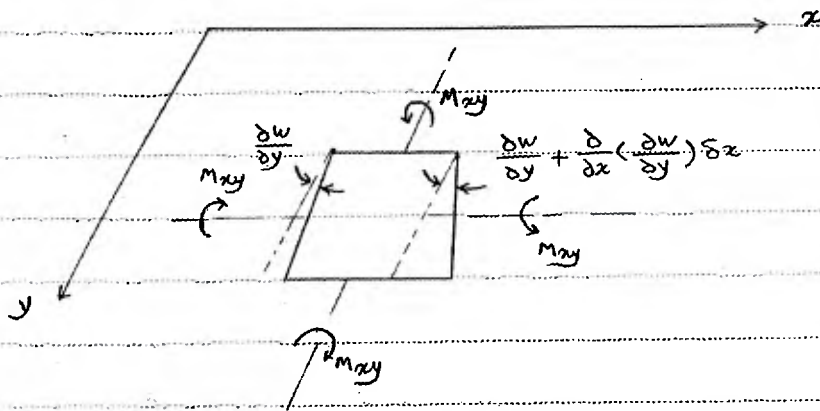 x
Mxy
∂w/∂y
∂w/∂y + ∂/∂x (∂w/∂y) δx
Mxy
Mxy
y
Mxy